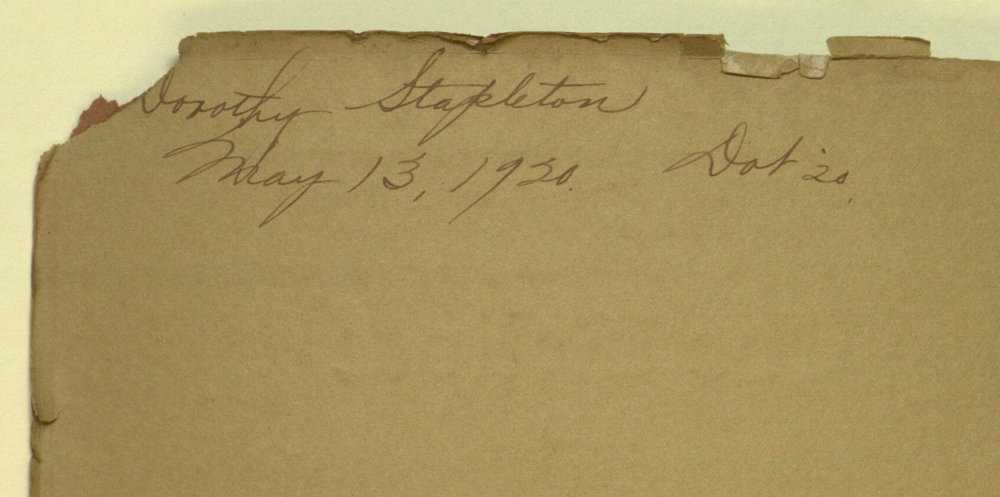 Dorothy Stapleton
May 13, 1920. Dot '20.